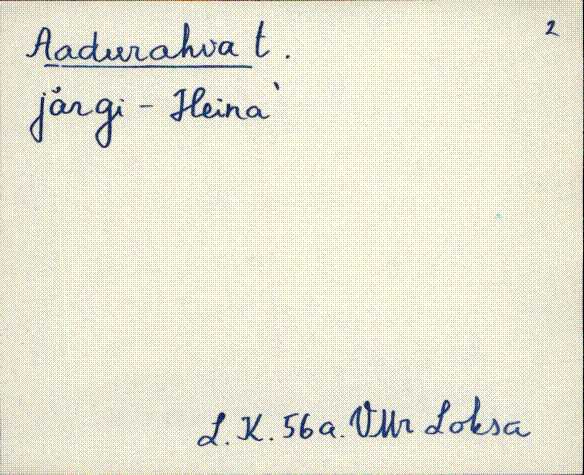 2
Aadurahva t.
järgi - Heina`
L. K. 56 a. VMr Loksa